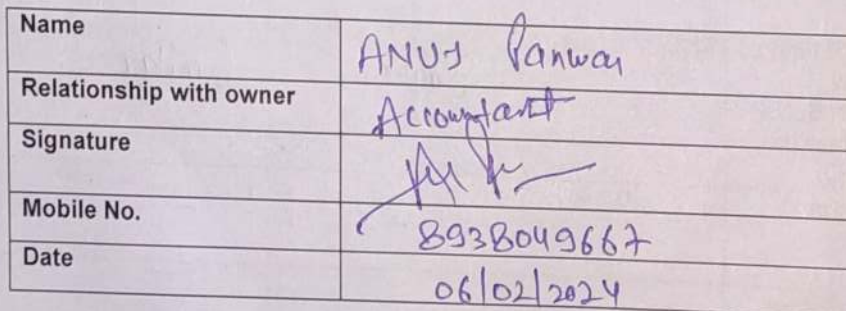 Name ANUJ Panwar
Relationship with owner Accountant
Signature
Mobile No. 8938049667
Date 06/02/2024